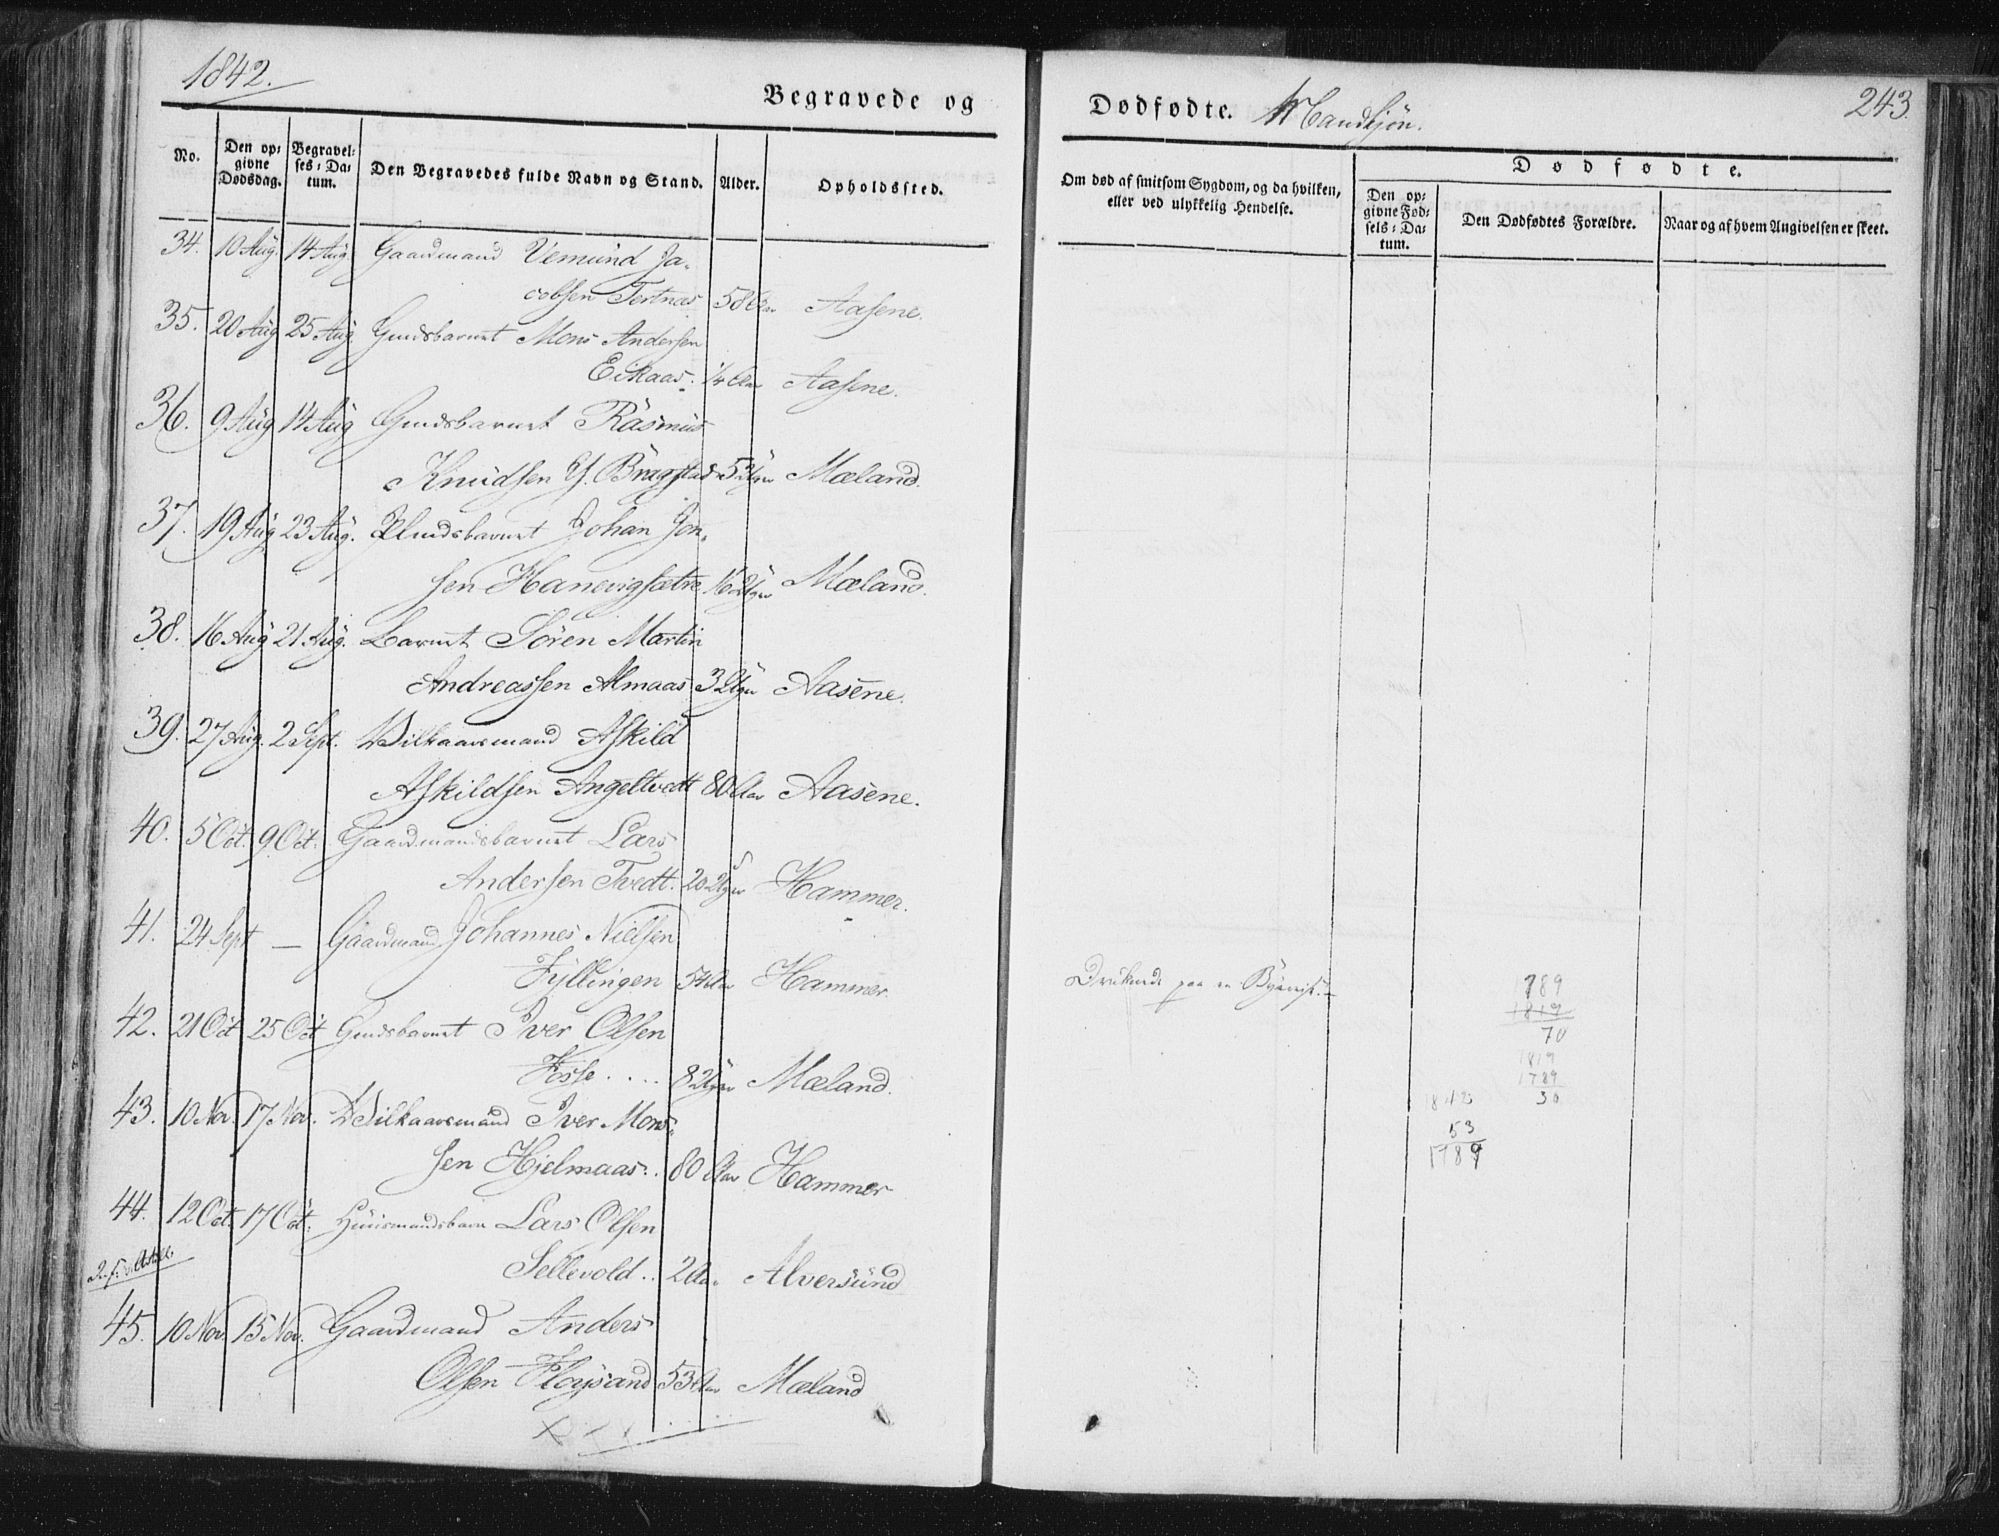 1842.
Begravede og
Dødfødte. Mandkjøn.
243.
No.
Den op-
givne
Dødsdag.
Begravel-
ses-Da-
tum.
Den Begravedes fulde Navn og Stand.
Alder.
Opholdssted.
Om død af smitsom Sygdom, og da hvilken,
eller ved ulykkelig Hendelse.
Dødfødte.
Den op-
givne Fød-
sels-Da-
tum.
Den Dødfødtes Forældre.
Naar og af hvem Angivelsen er skeet.
34. 10 Aug. 14 Aug. Gaardmand Vemund Ja-
cobsen Tertnæs 58 Aar Aasene.
35. 20 Aug 25 Aug Gmdsbarnet Mons Andersen
Eikaas. 1/4 Aar Aasene.
36. 9 Aug 14 Aug Gmdsbarnet Rasmus
Knudsen Y. Bragstad 5 Uger Mæland.
37. 19 Aug 23 Aug. Plmdsbarnet Johan Jon-
sen Hanevigsætre 16 Uger Mæland.
38. 16 Aug 21 Aug. Barnet Sören Martin
Andreassen Almaas 3 Uger Aasene.
39. 27 Aug. 2 Sept. Vilkaarsmand Askild
Askildsen Angeltvedt 80 Aar Aasene.
40. 5 Oct. 9 Oct. Gaardmandsbarnet Lars
Andersen Tvedt. 20 Uger Hammer.
41. 24 Sept — Gaardmand Johannes Nielsen
Fyllingen 54 Aar Hammer.
Druknede paa en Byereise.
42. 21 Oct 25 Oct Gmdsbarnet Iver Olsen
Fosse .... 8 Uger Mæland.
43. 10 Nov. 17 Nov. Vilkaarsmand Iver Mons-
sen Hjelmaas.. 80 Aar Hammer
44. 12 Oct. 17 Oct. Huusmandsbarn Lars Olsen
Sellevold.. 2 Aar Alversund
45. 10 Nov. 15 Nov. Gaardmand Anders
Olsen Fløysand 53 Aar Mæland
789
1819
70
1819
1789
30
1842
53
1789